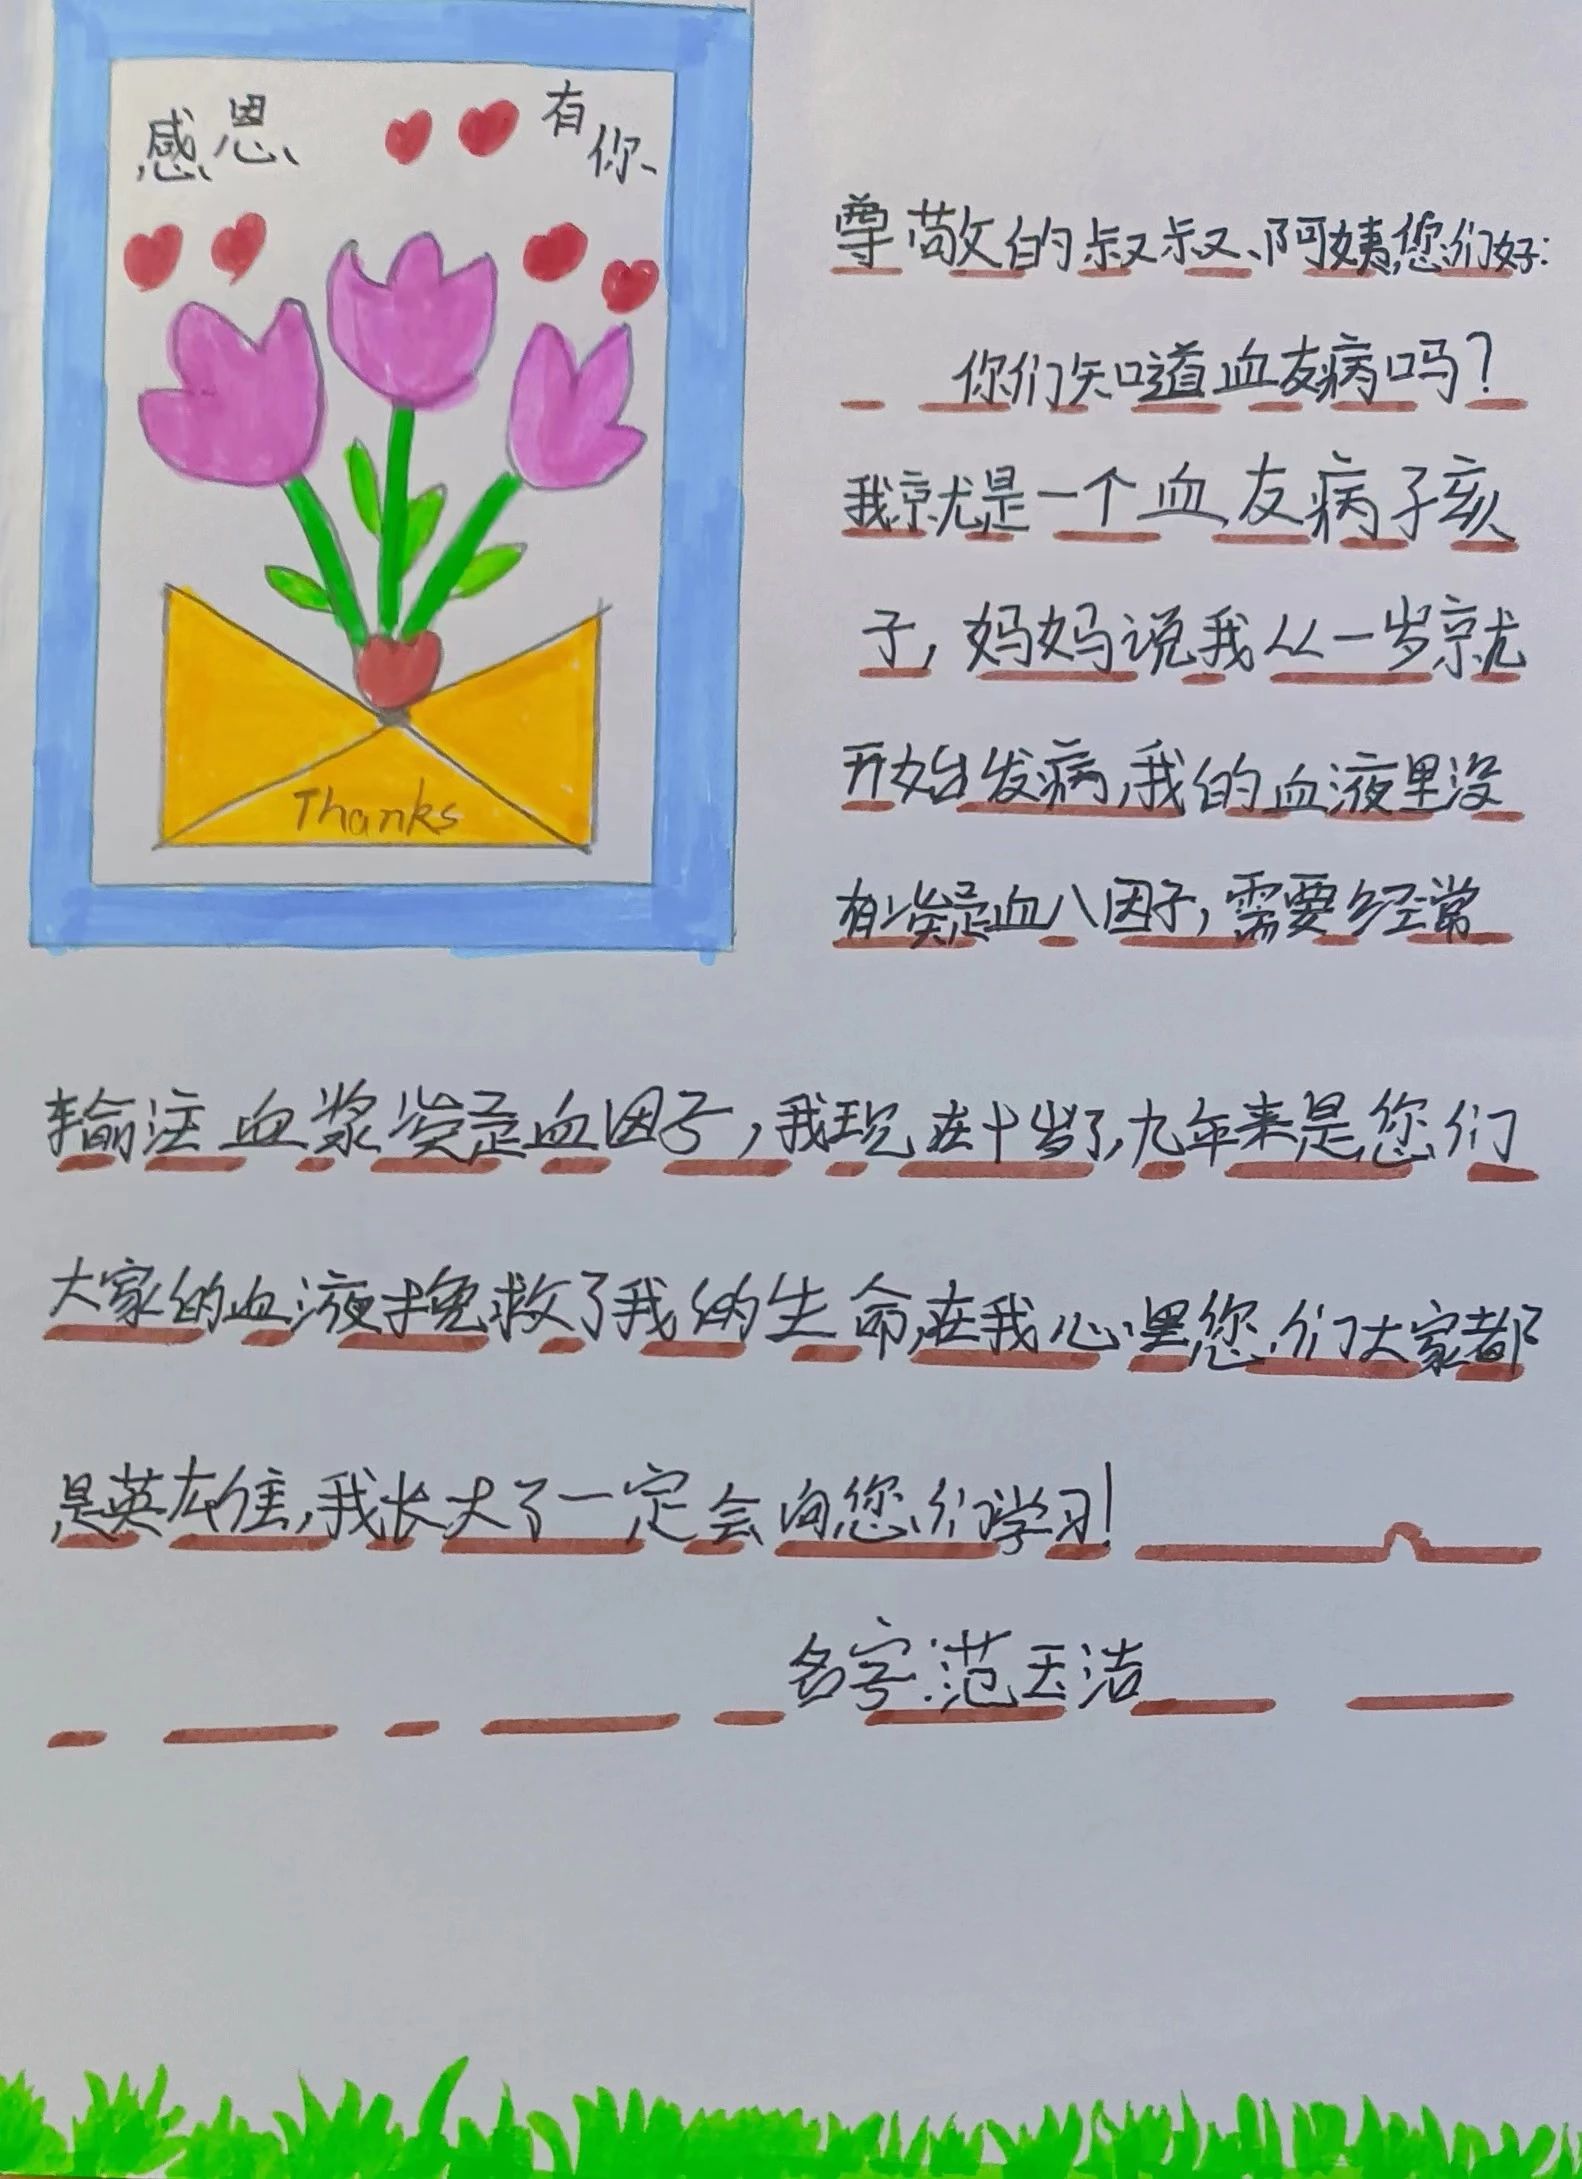 感恩 有你
Thanks
尊敬的叔叔、阿姨您们好:
你们知道血友病吗?
我就是一个血友病孩
子,妈妈说我从一岁就
开始发病,我的血液里没
有凝血八因子,需要经常
输注血浆凝血因子,我现在十岁了,九年来是您们
大家的血液挽救了我的生命,在我心里您们大家都
是英雄,我长大了一定会向您们学习!
名字:范玉洁